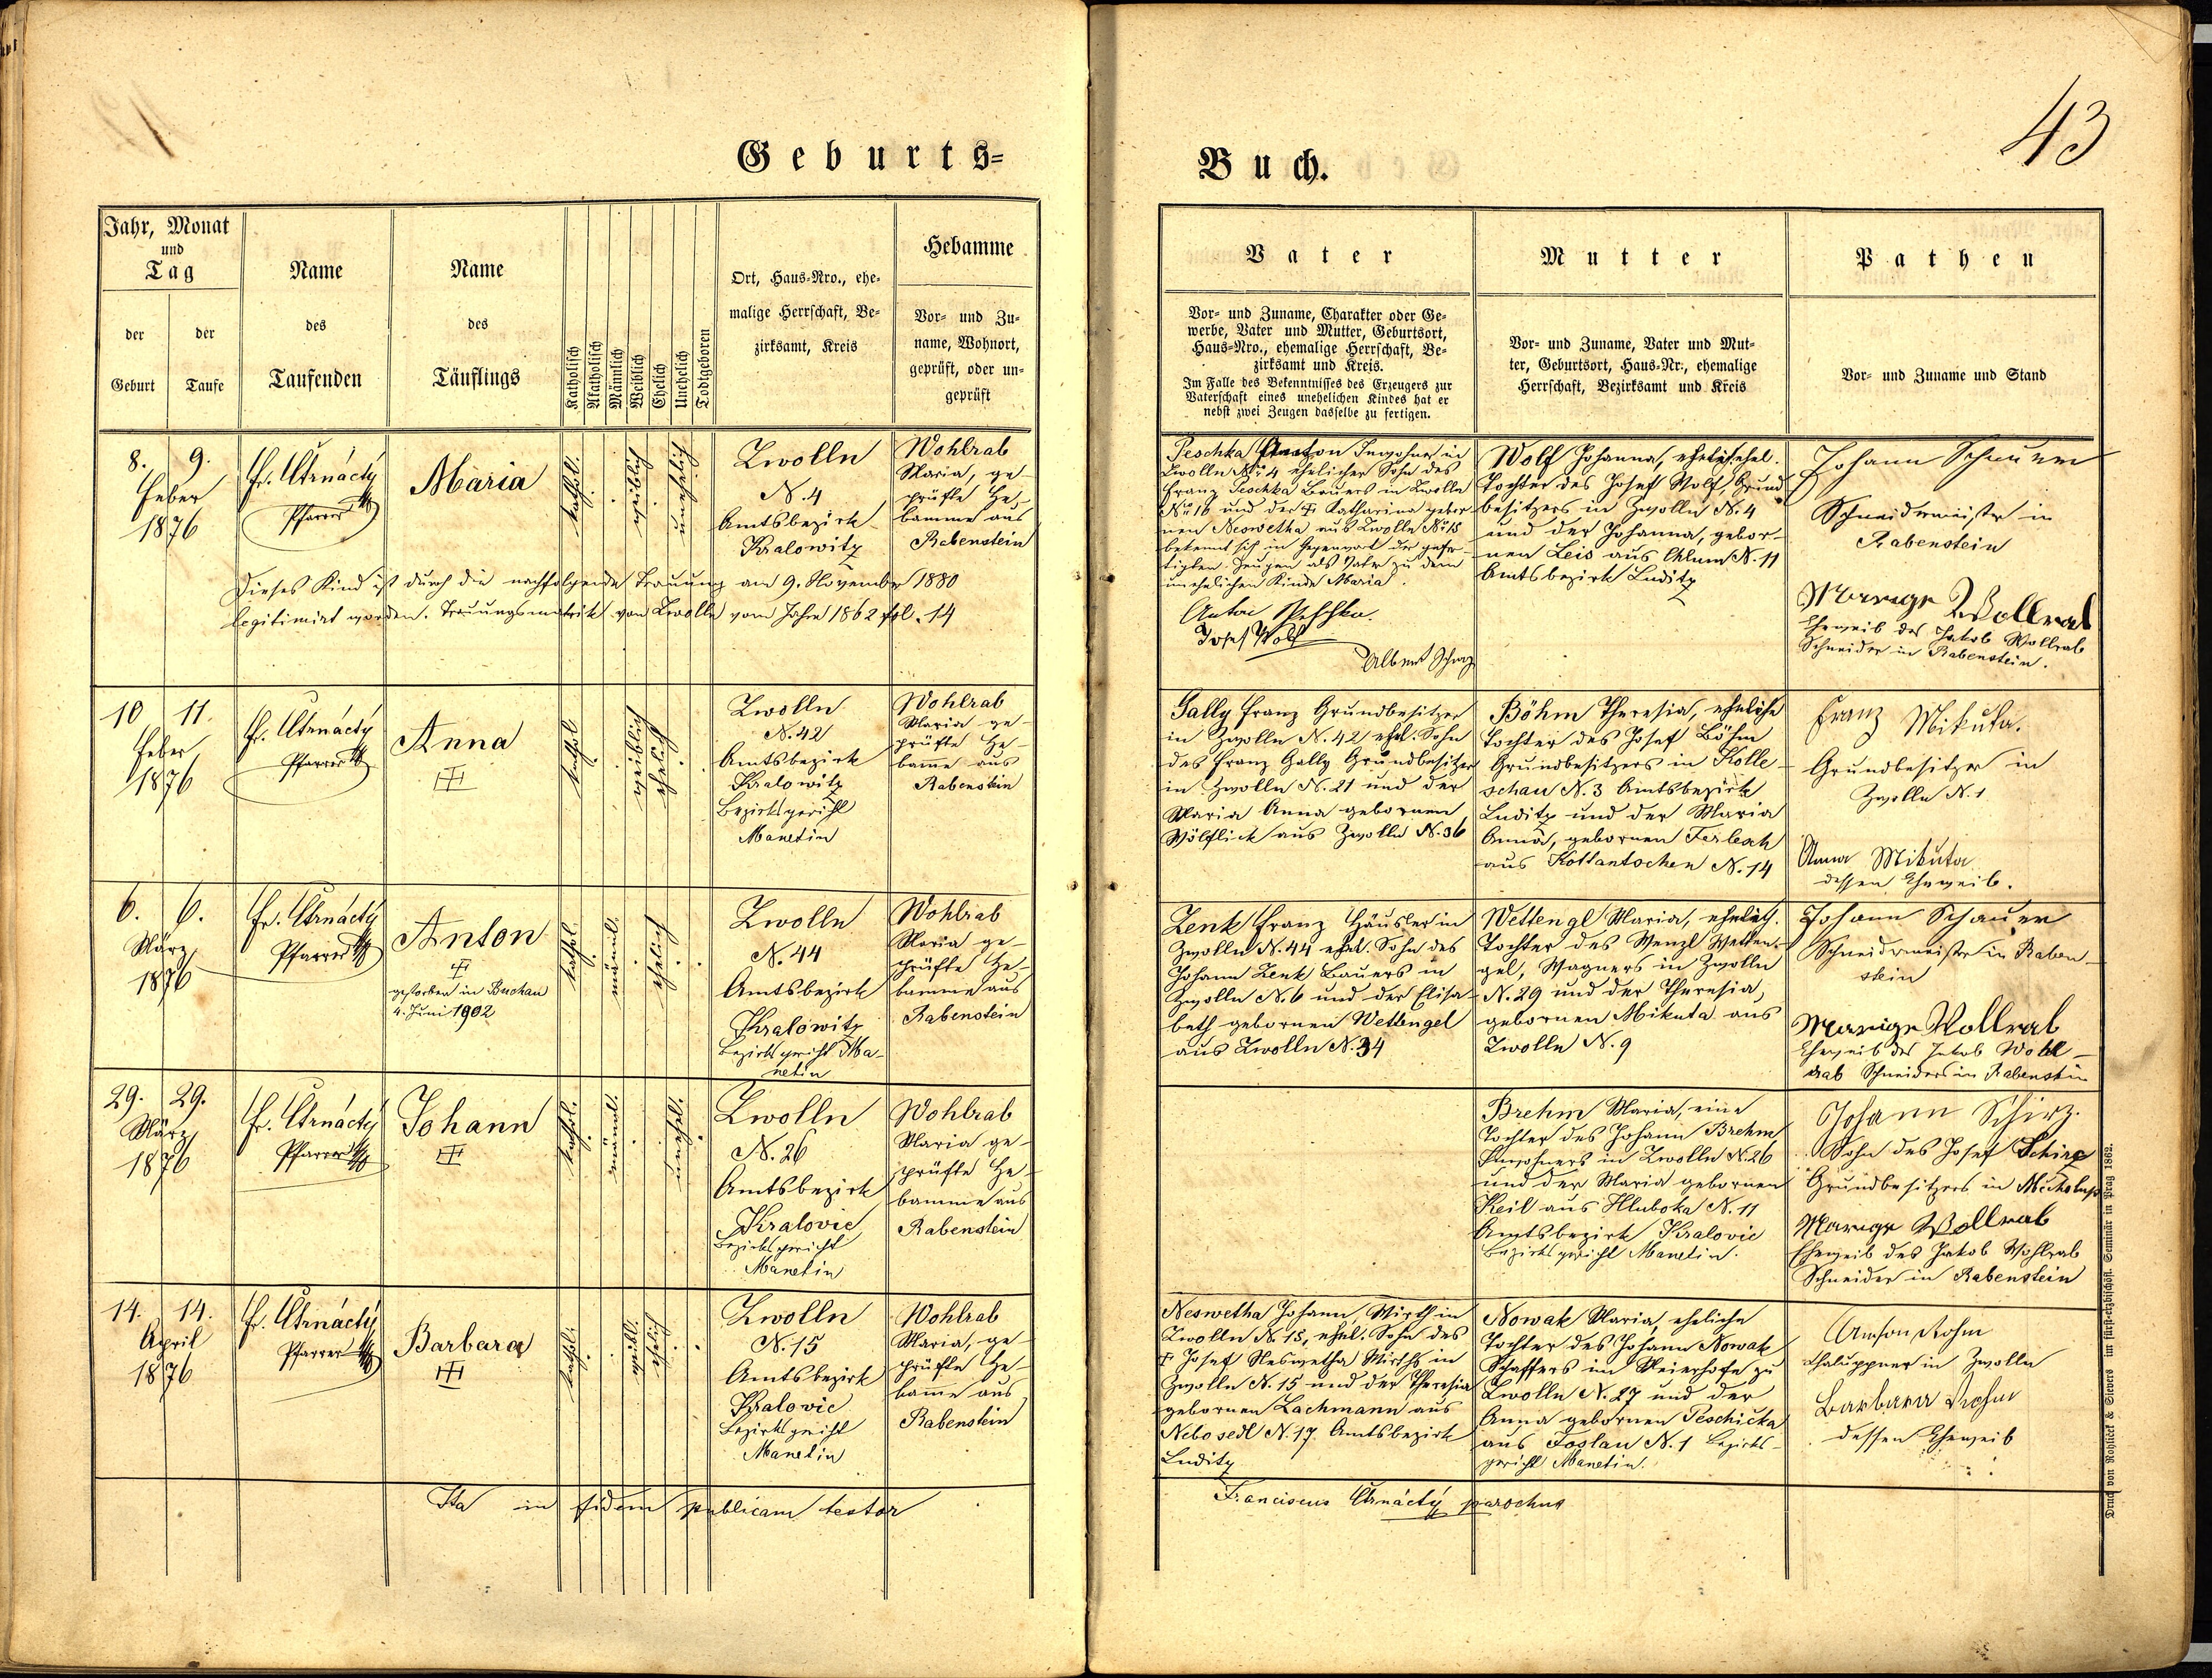 43
Geburts=
Buch.
Jahr, Monat
und
Tag
der
Geburt
der
Taufe
Name
des
Taufenden
Name
des
Täuflings
Katholisch
Akatholisch
Männlich
Weiblich
Ehelich
Unehelich
Todtgeboren
Ort, Haus-Nro., ehe-
malige Herrschaft, Be-
zirksamt, Kreis
Hebamme
Vor- und Zu-
name, Wohnort,
geprüft, oder un-
geprüft
Vater
Vor- und Zuname, Charakter oder Ge-
werbe, Vater und Mutter, Geburtsort,
Haus-Nro., ehemalige Herrschaft, Be-
zirksamt und Kreis.
Im Falle des Bekenntnisses des Erzeugers zur
Vaterschaft eines unehelichen Kindes hat er
nebst zwei Zeugen dasselbe zu fertigen.
Mutter
Vor- und Zuname, Vater und Mut-
ter, Geburtsort, Haus-Nr., ehemalige
Herrschaft, Bezirksamt und Kreis
Pathen
Vor- und Zuname und Stand
8. 9.
Feber
1876
Fr. Ctrnáctý
Pfarrer
Maria
kathol.
weiblich
unehelich
Zwolln
N. 4
Amtsbezirk
Kralowitz
Wohlrab
Maria, ge-
prüfte He-
bamme aus
Rabenstein
Dieses Kind ist durch die nachfolgende Trauung am 9. November 1880
legitimirt worden. Trauungsmatrik von Zwolln vom Jahre 1862 fol. 14
Peschka Anton Inwohner in
Zwolln No 4 ehelicher Sohn des
Franz Peschka Bauers in Zwolln
No 16 und der † Katharina gebor
nen Neswetha aus Zwolln No 15
bekennt sich in Gegenwart der gefer-
tigten Zeugen als Vater zu dem
unehelichen Kinde Maria.
Anton Peschka.
Josef Wolf
Albert
Wolf Johanna, ehel.
Tochter des Josef Wolf, Grund
besitzers in Zwolln N. 4
und der Johanna, gebor-
nen Leis aus Chlum N. 11
Amtsbezirk Luditz
Johann Schauer
Schneidermeister in
Rabenstein
Wollrab
Eheweib des Jakob Wollrab
Schneider in Rabenstein.
10 11.
Feber
1876
Fr. Ctrnáctý
Pfarrer
Anna
kathol
weiblich
ehelich
Zwolln
N. 42
Amtsbezirk
Kralowitz
Bezirksgericht
Manetin
Wohlrab
Maria ge-
prüfte He-
bame aus
Rabenstein
Gally Franz Grundbesitzer
in Zwolln N. 42 ehel. Sohn
des Franz Gally Grundbesitzer
in Zwolln N. 21 und der
Maria Anna gebornen
Wölflick aus Zwolln N. 36
Böhm Theresia, eheliche
Tochter des Josef Böhm
Grundbesitzers in Kolle-
schau N. 3 Amtsbezirk
Luditz und der Maria
Anna, gebornen Ferlesch
aus Kottantschen N. 14
Franz Mikuta.
Grundbesitzer in
Zwolln N. 1
Anna Mikuta
dessen Eheweib.
6. 6.
März
1876
Fr. Ctrnáctý
Pfarrer
Anton
†
gestorben in Buchau
4. Juni 1902
kathol.
männl.
ehelich
Zwolln
N. 44
Amtsbezirk
Kralowitz
Bezirksgericht Ma-
netin
Wohlrab
Maria ge-
prüfte He-
bamme aus
Rabenstein
Zenk Franz Häusler in
Zwolln N. 44 ehel. Sohn des
Johann Zenk Bauers in
Zwolln N. 6 und der Elisa-
beth gebornen Wettengel
aus Zwolln N. 34
Wettengl Maria, ehelich.
Tochter des Wenzl Wetten-
gel, Wagners in Zwolln
N. 29 und der Theresia,
gebornen Mikuta aus
Zwolln N. 9
Johann Schauer
Schneidermeister in Raben-
stein
Wollrab
Eheweib des Jakob Wohl-
rab Schneiders in Rabenstein
29. 29.
März
1876
Fr. Ctrnáctý
Pfarrer
Johann
kathol.
männl.
unehel.
Zwolln
N. 26
Amtsbezirk
Kralovic
Bezirksgericht
Manetin
Wohlrab
Maria ge-
prüfte He-
bamme aus
Rabenstein
Brehm Maria, eine
Tochter des Johann Brehm
Inwohners in Zwolln N. 26
und der Maria gebornen
Keil aus Hluboka N. 11
Amtsbezirk Kralovic
Bezirksgericht Manetin.
Johann Schirz.
Sohn des Josef Schirz
Grundbesitzers in
Wollrab
Eheweib des Jakob Wohlrab
Schneider in Rabenstein
14. 14.
April
1876
Fr. Ctrnáctý
Pfarrer
Barbara
kathol.
weibl.
ehelich
Zwolln
N. 15
Amtsbezirk
Kralovic
Bezirksgericht
Manetin
Wohlrab
Maria, ge-
prüfte He-
bame aus
Rabenstein
Neswetha Johann, Wirth in
Zwolln N. 15, ehel. Sohn des
† Josef Neswetha Wirths in
Zwolln N. 15 und der Theresia
gebornen Lachmann aus
Nebosedl N. 17 Amtsbezirk
Luditz
Nowak Maria, eheliche
Tochter des Johann Nowak
Schaffers im Meierhofe zu
Zwolln N. 27 und der
Anna gebornen Peschička
aus Joslau N. 1 Bezirks-
gericht Manetin.
Anton
Chaluppner in Zwolln
Barbara
dessen Eheweib
Ita in fidem publicam testor
Franciscus Ctrnáctý parochus
Druck von Rohlicek & Sievers im fürst-erzbischöfl. Seminär in Prag 1862.